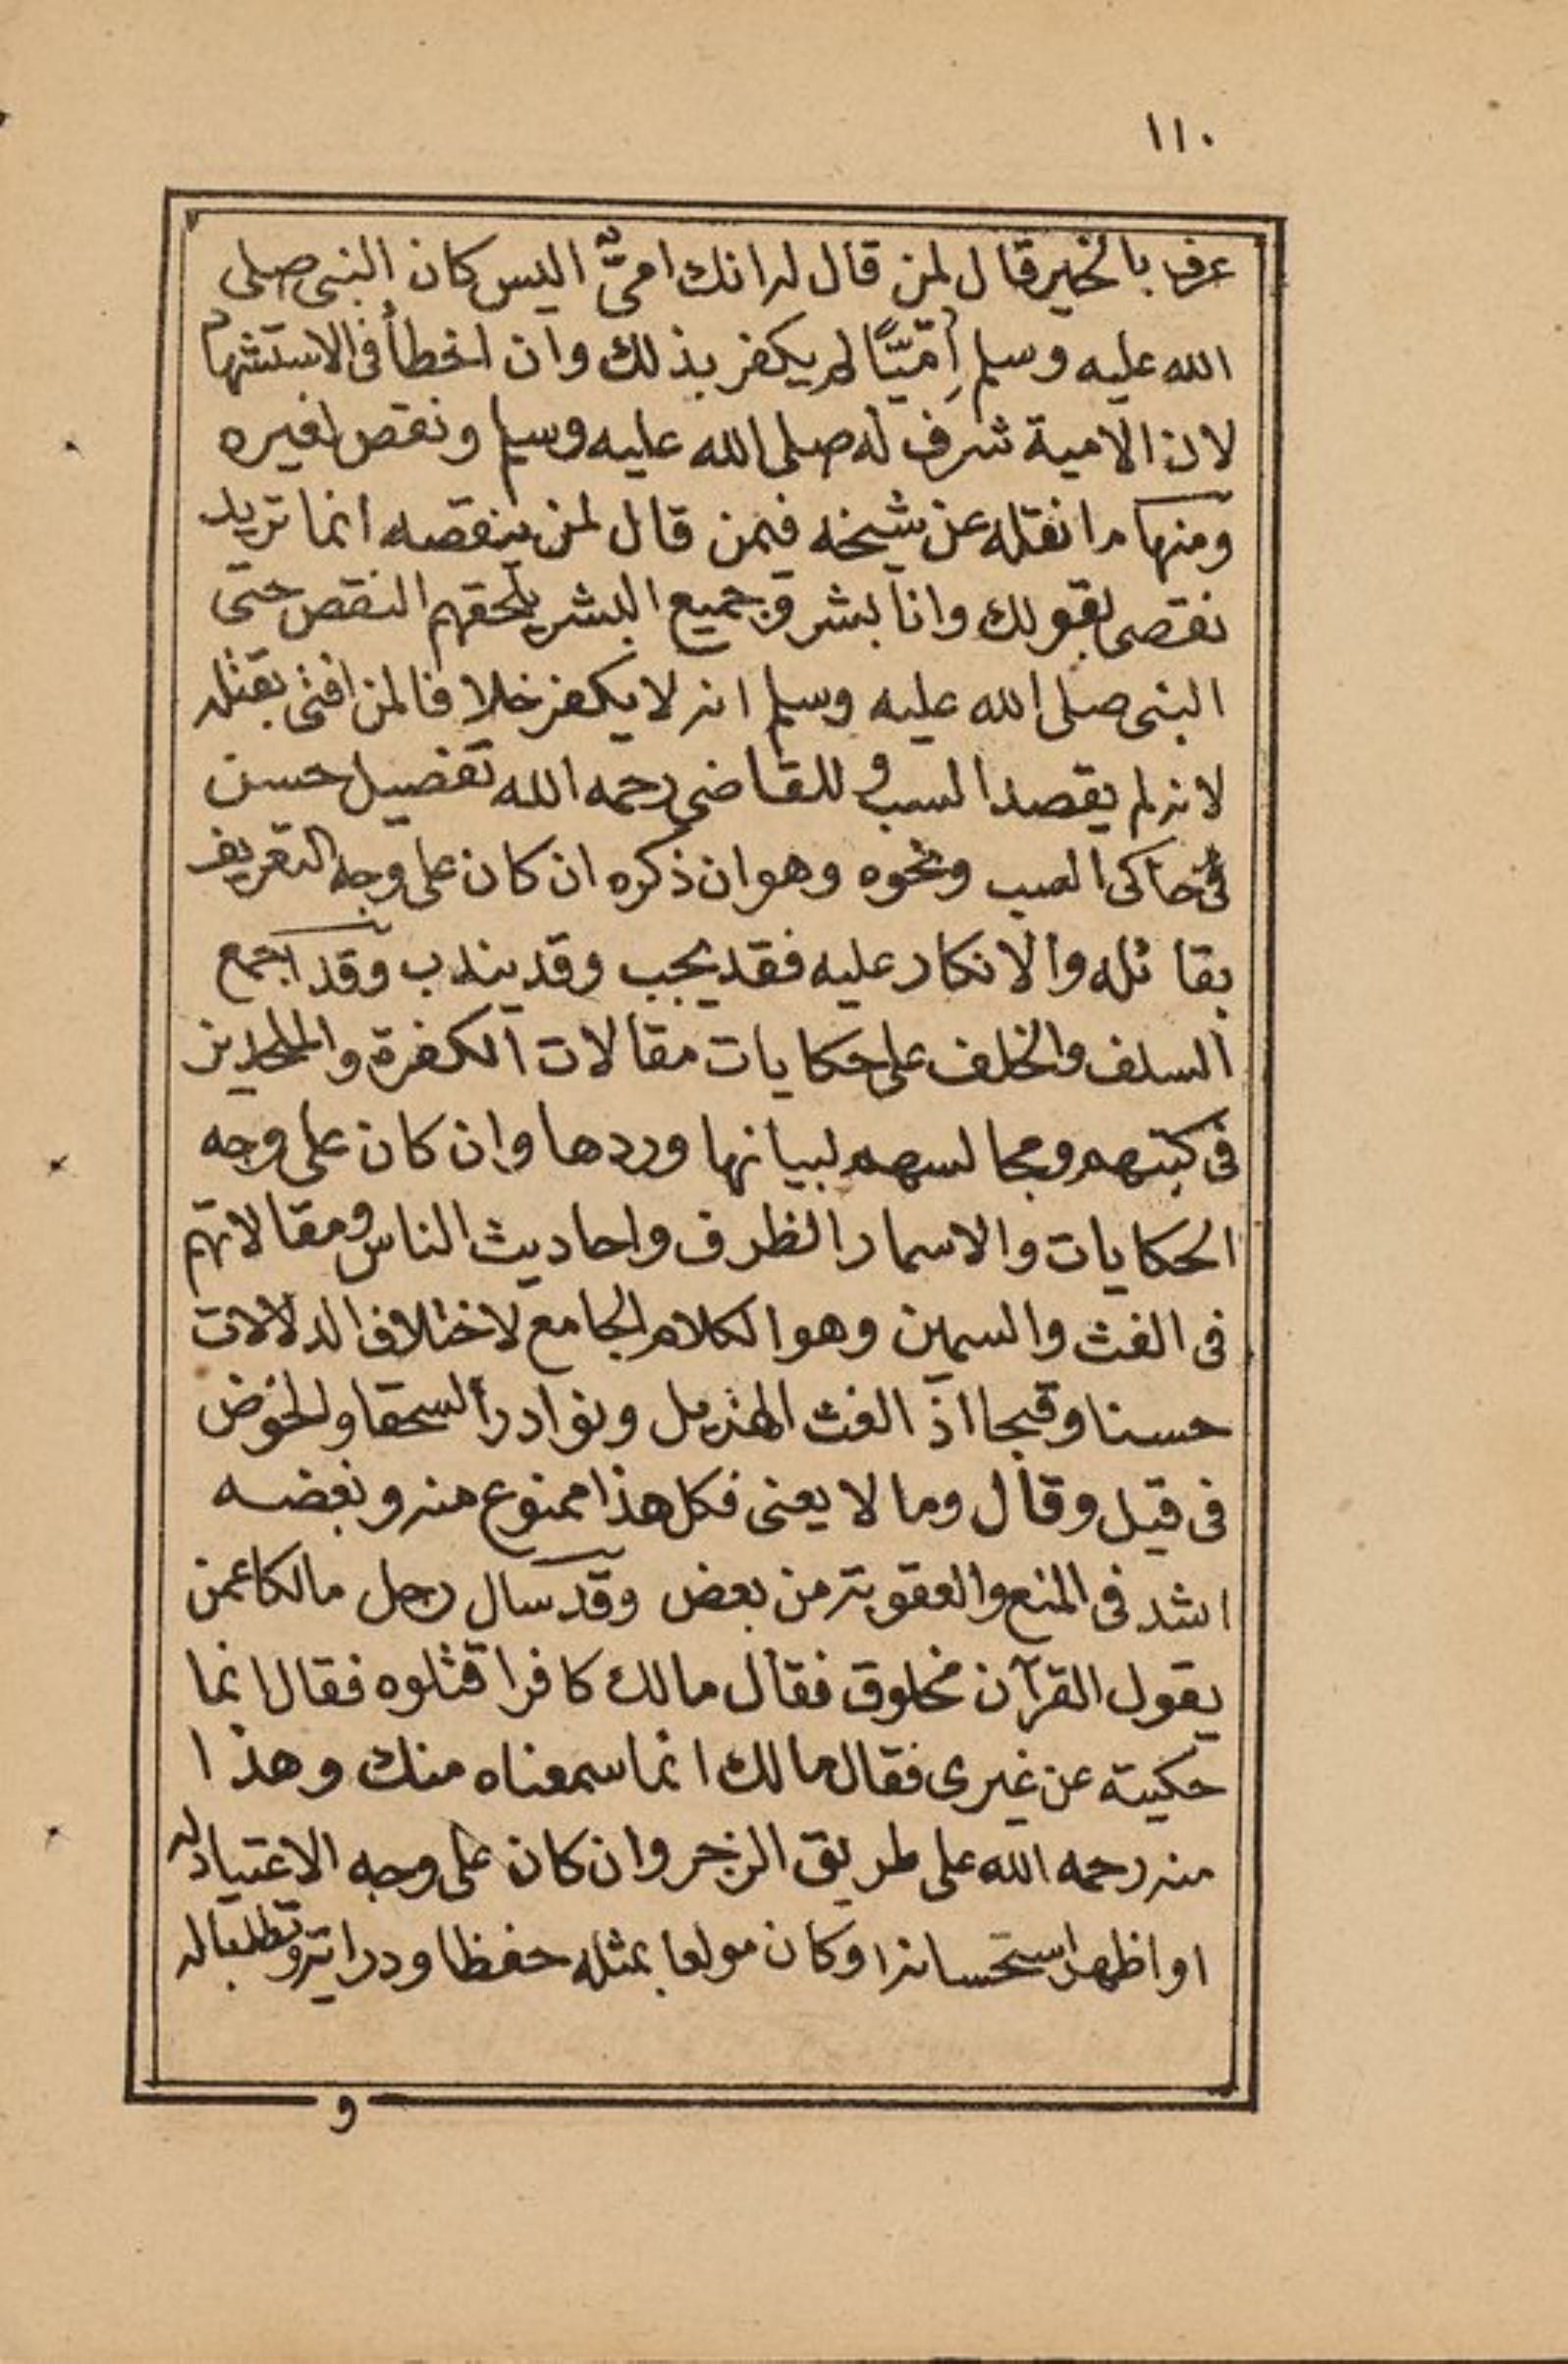 ١١٠
عرف بالخير قال لمن قال له انك اميٌّ اليس كان النبى صلى
الله عليه وسلم اُمّيًّا لم يكفر بذلك وان اخطأ فى الاستشهاد
لان الامية شرف له صلى الله عليه وسلم ونقص لغيره
ومنها ما نقله عن شيخه فيمن قال لمن ينقصه انما تريد
نقصى بقولك وانا بشر وجميع البشر يلحقهم النقص حتى
النبى صلى الله عليه وسلم انه لا يكفر خلافا لمن افتى بقتله
لانه لم يقصد السب وللقاضى رحمه الله تفصيل حسن
فى حاكى السب ونحوه وهو ان ذكره ان كان على وجه التعريف
بقائله والانكار عليه فقد يجب وقد يندب وقد اجمع
السلف والخلف على حكايات مقالات الكفرة والملحدين
فى كتبهم ومجالسهم لبيانها وردها وان كان على وجه
الحكايات والاسمار الظرف واحاديث الناس ومقالاتهم
فى الغث والسمين وهو الكلام الجامع لاختلاف الدلالات
حسنا وقبحا اذ الغث الهزيل ونوادر السحقا والخوض
فى قيل وقال وما لا يعنى فكل هذا ممنوع منه وبعضه
اشد فى المنع والعقوبة من بعض وقد سال رجل مالكا عمن
يقول القرآن مخلوق فقال مالك كافرا قتلوه فقال انما
حكيته عن غيرى فقال مالك انما سمعناه منك وهذا
منه رحمه الله على طريق الزجر وان كان على وجه الاعتياد له
او اظهر استحسانه او كان مولعا بمثله حفظا ودراية وتطلبا له
و